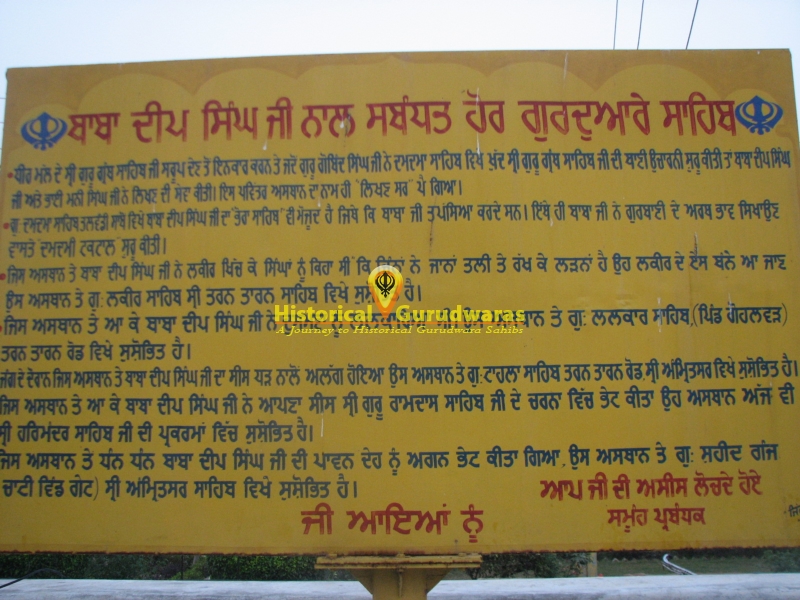 ਬਾਬਾ ਦੀਪ ਸਿੰਘ ਜੀ ਨਾਲ ਸਬੰਧਤ ਹੋਰ ਗੁਰਦੁਆਰੇ ਸਾਹਿਬ
• ਧੀਰ ਮਲ ਦੇ ਸ੍ਰੀ ਗੁਰੂ ਗ੍ਰੰਥ ਸਾਹਿਬ ਜੀ ਸਰੂਪ ਦੇਣ ਤੋਂ ਇਨਕਾਰ ਕਰਨ ਤੇ ਜਦੋਂ ਗੁਰੂ ਗੋਬਿੰਦ ਸਿੰਘ ਜੀ ਨੇ ਦਮਦਮਾ ਸਾਹਿਬ ਵਿਖੇ ਖ਼ੁਦ ਸ੍ਰੀ ਗੁਰੂ ਗ੍ਰੰਥ ਸਾਹਿਬ ਜੀ ਦੀ ਬਾਣੀ ਉਚਾਰਨੀ ਸੁਰੂ ਕੀਤੀ ਤਾਂ ਬਾਬਾ ਦੀਪ ਸਿੰਘ
ਜੀ ਅਤੇ ਭਾਈ ਮਨੀ ਸਿੰਘ ਜੀ ਨੇ ਲਿਖਣ ਦੀ ਸੇਵਾ ਕੀਤੀ। ਇਸ ਪਵਿਤਰ ਅਸਥਾਨ ਦਾ ਨਾਮ ਹੀ "ਲਿਖਣ ਸਰ" ਪੈ ਗਿਆ।
• ਗੁ. ਦਮਦਮਾ ਸਾਹਿਬ ਤਲਵੰਡੀ ਸਾਬੋ ਵਿਖੇ ਬਾਬਾ ਦੀਪ ਸਿੰਘ ਜੀ ਦਾ ਭੋਰਾ ਸਾਹਿਬ ਵੀ ਮੌਜੂਦ ਹੈ ਜਿਥੇ ਕਿ ਬਾਬਾ ਜੀ ਤਪੱਸਿਆ ਕਰਦੇ ਸਨ। ਇਥੇ ਹੀ ਬਾਬਾ ਜੀ ਨੇ ਗੁਰਬਾਣੀ ਦੇ ਅਰਥ ਭਾਵ ਸਿਖਾਉਣ
ਵਾਸਤੇ ਦਮਦਮੀ ਟਕਟਾਲ ਸੁਰੂ ਕੀਤੀ।
• ਜਿਸ ਅਸਥਾਨ ਤੇ ਬਾਬਾ ਦੀਪ ਸਿੰਘ ਜੀ ਨੇ ਲਕੀਰ ਖਿਚ ਕੇ ਸਿੰਘਾਂ ਨੂੰ ਕਿਹਾ ਸੀ ਕਿ ਜਿੰਨਾਂ ਨੇ ਜਾਨਾਂ ਤਲੀ ਤੇ ਰੱਖ ਕੇ ਲੜਨਾਂ ਹੈ ਉਹ ਲਕੀਰ ਦੇ ਏਸ ਬੰਨੇ ਆ ਜਾਣ
ਉਸ ਅਸਥਾਨ ਤੇ ਗੁ: ਲਕੀਰ ਸਾਹਿਬ ਸ੍ਰੀ ਤਰਨ ਤਾਰਨ ਸਾਹਿਬ ਵਿਖੇ ਸੁਸ਼ੋਭਿਤ ਹੈ।
• ਜਿਸ ਅਸਥਾਨ ਤੇ ਆ ਕੇ ਬਾਬਾ ਦੀਪ ਸਿੰਘ ਜੀ ਨੇ ਤੇ ਗੁ: ਲਲਕਾਰ ਸਾਹਿਬ,(ਪਿੰਡ ਗੋਹਲਵੜ)
ਤਰਨ ਤਾਰਨ ਰੋਡ ਵਿਖੇ ਸੁਸੋਭਿਤ ਹੈ।
ਜੰਗ ਦੇ ਦੌਰਾਨ ਜਿਸ ਅਸਥਾਨ ਤੇ ਬਾਬਾ ਦੀਪ ਸਿੰਘ ਜੀ ਦਾ ਸੀਸ ਧੜ ਨਾਲੋਂ ਅਲੱਗ ਹੋਇਆ ਉਸ ਅਸਥਾਨ ਤੇ ਗੁ:ਟਾਹਲਾ ਸਾਹਿਬ ਤਰਨ ਤਾਰਨ ਰੋਡ ਸ੍ਰੀ ਅੰਮ੍ਰਿਤਸਰ ਵਿਖੇ ਸੁਸੋਭਿਤ ਹੈ।
ਜਿਸ ਅਸਥਾਨ ਤੇ ਆ ਕੇ ਬਾਬਾ ਦੀਪ ਸਿੰਘ ਜੀ ਨੇ ਆਪਣਾ ਸੀਸ ਸ੍ਰੀ ਗੁਰੂ ਰਾਮਦਾਸ ਸਾਹਿਬ ਜੀ ਦੇ ਚਰਨਾ ਵਿੱਚ ਭੇਟ ਕੀਤਾ ਉਹ ਅਸਥਾਨ ਅੱਜ ਵੀ
ਸ੍ਰੀ ਹਰਿਮੰਦਰ ਸਾਹਿਬ ਜੀ ਦੀ ਪ੍ਰਕਰਮਾਂ ਵਿੱਚ ਸੁਸੋਭਿਤ ਹੈ।
ਜਿਸ ਅਸਥਾਨ ਤੇ ਧੰਨ ਧੰਨ ਬਾਬਾ ਦੀਪ ਸਿੰਘ ਜੀ ਦੀ ਪਾਵਨ ਦੇਹ ਨੂੰ ਅਗਨ ਭੇਟ ਕੀਤਾ ਗਿਆ, ਉਸ ਅਸਥਾਨ ਤੇ ਗੁ: ਸਹੀਦ ਗੰਜ
ਚਾਟੀ ਵਿੰਡ ਗੇਟ) ਸ੍ਰੀ ਅੰਮ੍ਰਿਤਸਰ ਸਾਹਿਬ ਵਿਖੇ ਸੁਸੋਭਿਤ ਹੈ।
ਜੀ ਆਇਆਂ ਨੂੰ
ਆਪ ਜੀ ਦੀ ਅਸੀਸ ਲੋਚਦੇ ਹੋਏ
ਸਮੂੰਹ ਪ੍ਰਬੰਧਕ
Historical Gurudwaras
A Journey to Historical Gurudwara Sahibs